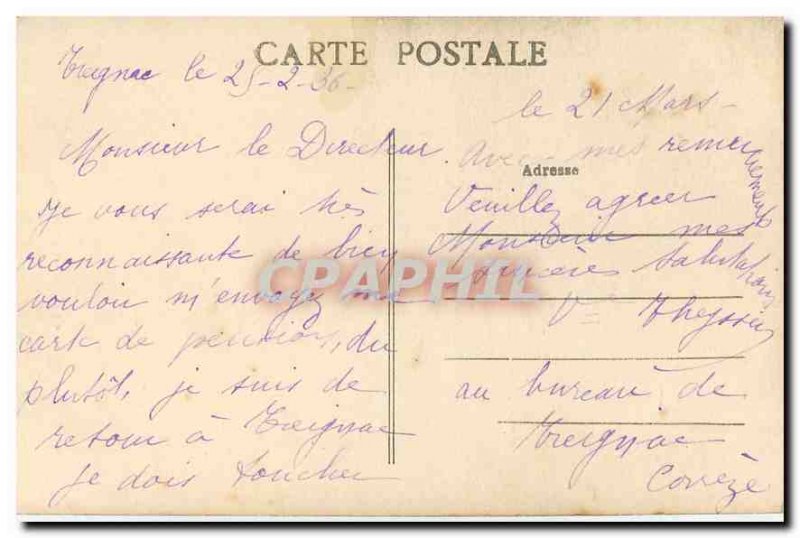 CARTE POSTALE
Treignac le 25-2-36-
Monsieur le Directeur
Je vous serai très
reconnaissante de bien
vouloir m'envoyez ma
carte de pension, du
plutôt, je suis de
retour à Treignac
je dois toucher
le 21 Mars-
Avec mes remerciements
Adresse
Veuillez agréer
Monsieur mes
sincères salutations
Vve Theyssier
au bureau de
Treignac
Corrèze
CPAPHIL